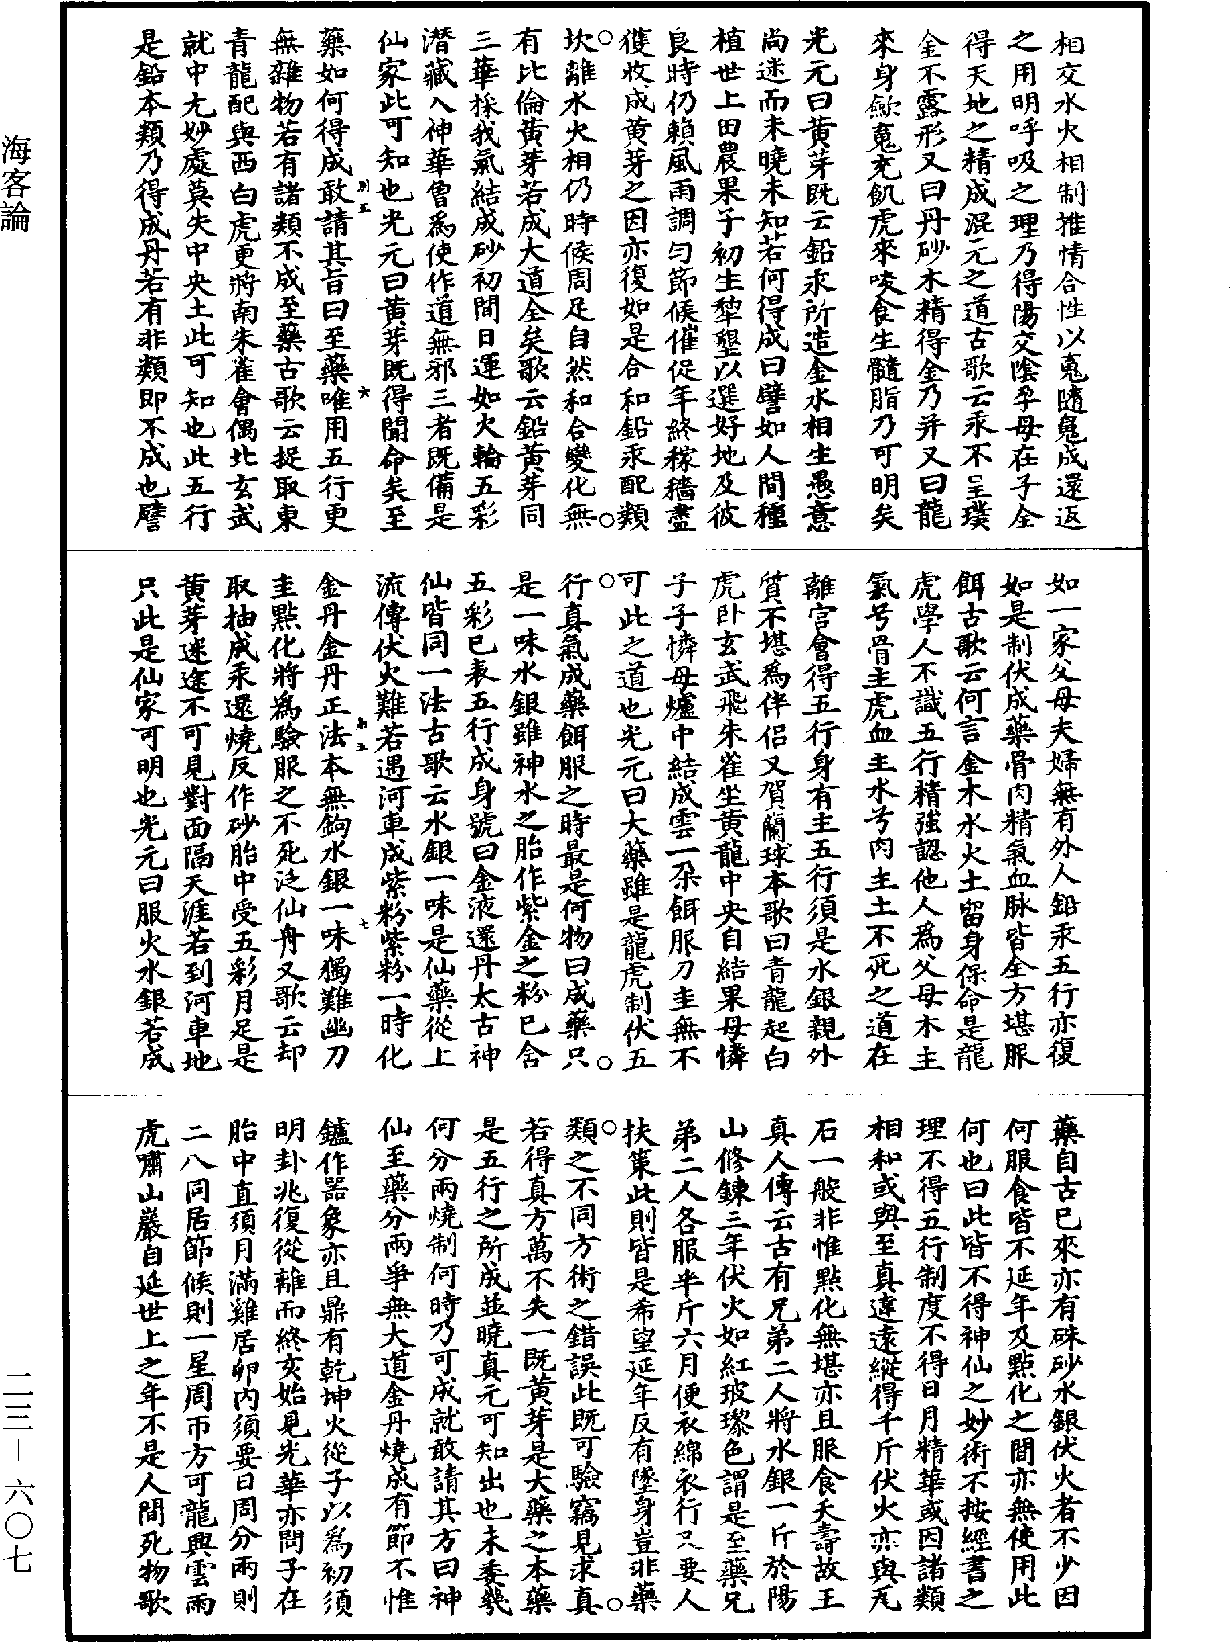 海客論
相交水火相制推情合性以䰟隨䰟成還返
之用明呼吸之理乃得陽交陰孕母在子全
得天地之精成混元之道古歌云汞不呈璞
金不露形又曰丹砂木精得金乃并又曰龍
來身歘䰟充飢虎來唼食生髓脂乃可明矣
光元曰黄芽既云鉛汞所造金水相生愚意
尚迷而未曉未知若何得成曰譬如人間種
植世上田農果子初生犂墾以選好地及彼
良時仍賴風雨調勻節候催促年終稼穡盡
獲收成黄芽之因亦復如是合和鉛汞配類
坎離水火相仍時候周足自然和合變化無
有比倫黄芽若成大道全矣歌云鉛黄芽同
三華採我氣結成砂初間日運如火輪五彩
潛藏入神華曾爲使作道無邪三者既備是
仙家此可知也光元曰黄芽既得聞命矣至
藥如何得成敢請其旨曰至藥唯用五行更
無雜物若有諸類不成至藥古歌云捉取東
青龍配與西白虎更將南朱雀會偶北玄武
就中尤妙處莫失中央土此可知也此五行
是鉛本類乃得成丹若有非類即不成也譬
如一家父母夫婦無有外人鉛汞五行亦復
如是制伏成藥骨肉精氣血脉皆全方堪服
餌古歌云何言金木水火土留身保命是龍
虎學人不識五行精強認他人爲父母木主
氣兮骨主虎血主水兮肉主土不死之道在
離宫會得五行身有主五行須是水銀親外
質不堪爲伴侣又賀蘭球本歌曰青龍起白
虎卧玄武飛朱雀坐黄龍中央自結果母憐
子子憐母爐中結成雲一朶餌服刀圭無不
可此之道也光元曰大藥雖是龍虎制伏五
行真氣成藥餌服之時最是何物曰成藥只
是一味水銀雖神水之胎作紫金之粉已含
五彩已表五行成身號曰金液還丹太古神
仙皆同一法古歌云水銀一味是仙藥從上
流傳伏火難若遇河車成紫粉紫粉一時化
金丹金丹正法本無鉤水銀一味獨難幽刀
圭點化將爲驗服之不死泛仙舟又歌云却
取抽成汞還燒反作砂胎中受五彩月足是
黄芽迷途不可見對面隔天涯若到河車地
只此是仙家可明也光元曰服火水銀若成
藥自古已來亦有硃砂水銀伏火者不少因
何服食皆不延年及點化之間亦無使用此
何也曰此皆不得神仙之妙術不按經書之
理不得五行制度不得日月精華或因諸類
相和或與至真違遠縱得千斤伏火亦與瓦
石一般非惟點化無堪亦且服食夭壽故王
真人傳云古有兄弟二人將水銀一斤於陽
山修鍊三年伏火如紅玻瓈色謂是至藥兄
弟二人各服半斤六月便衣綿衣行只要人
扶策此則皆是希望延年反有墜身豈非藥
類之不同方術之錯誤此既可驗竊見求真
若得真方萬不失一既黄芽是大藥之本藥
是五行之所成並曉真元可知出也未委幾
何分兩燒制何時乃可成就敢請其方曰神
仙至藥分兩爭無大道金丹燒成有節不惟
鑪作器象亦且鼎有乾坤火從子以爲初須
明卦兆復從離而終亥始見光華亦問子在
胎中直須月滿雞居卵内須要日周分兩則
二八同居節候則一星周帀方可龍興雲雨
虎嘯山巖自延世上之年不是人間死物歌
二三—六〇七